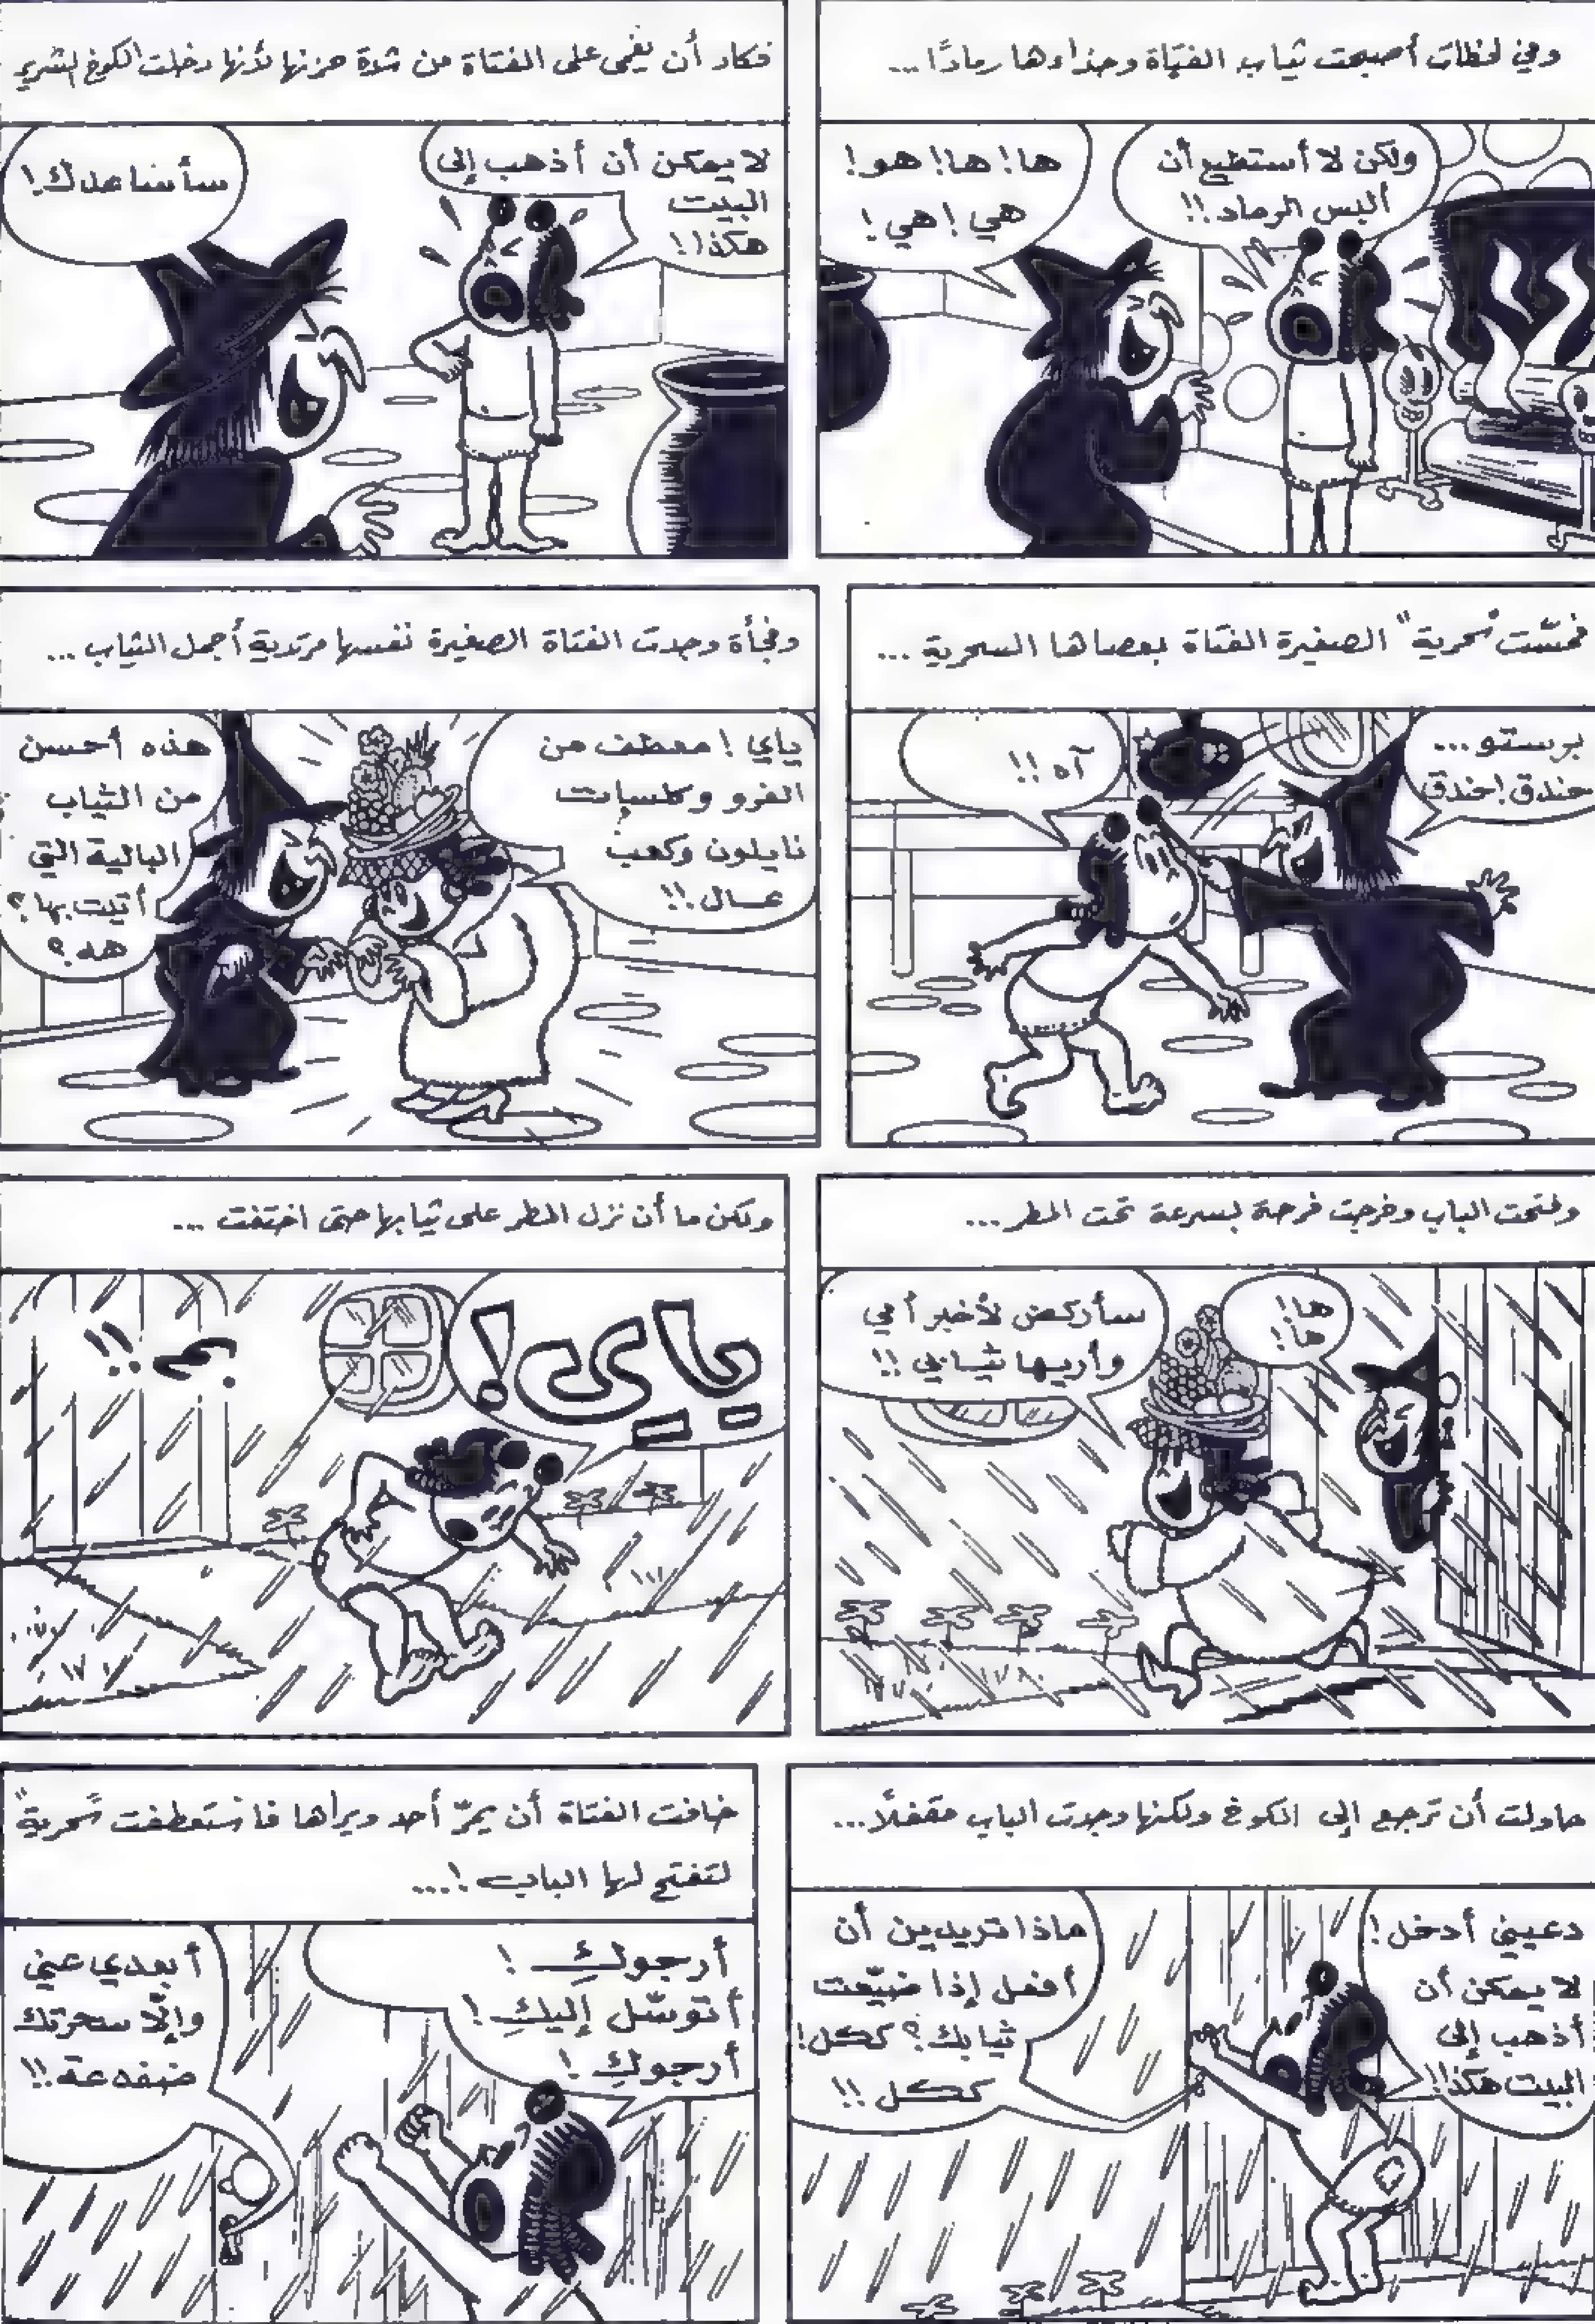 وفي لحظات أصبحت ثياب الفتاة وحذاءها رمادًا...
ولكن لا أستطيع أن
ألبس الرماد!!
ها! ها! هو!
هي! هي!
فكاد أن يغمى على الفتاة من شدة حزنها لأنها دخلت الكوخ الشرير
لا يمكن أن أذهب إلى
البيت
هكذا!!
سأساعدك!
فمسّت "سحرية" الصغيرة الفتاة بعصاها السحرية...
برستو...
خندق! خندق
آه!!
وفجأة وجدت الفتاة الصغيرة نفسها مرتدية أجمل الثياب...
ياي! معطف من
الفرو وكلسات
نايلون وكعب
عال!!
هذه أحسن
من الثياب
البالية التي
أتيت بها؟
هه؟
وفتحت الباب وخرجت فرحة بسرعة تحت المطر...
ها!
ها!
سأركض لأخبر أمي
وأريها ثيابي!!
ولكن ما أن نزل المطر على ثيابها حتى اختفت...
ياي!
بم!!
حاولت أن ترجع إلى الكوخ ولكنها وجدت الباب مقفلًا...
دعيني أدخل!
لا يمكن أن
أذهب إلى
البيت هكذا!!
ماذا تريدين أن
أفعل إذا ضيّعت
ثيابك؟ ككل!
ككل!!
خافت الفتاة أن يمرّ أحد ويراها فاستعطفت "سحرية"
لتفتح لها الباب!...
أرجوكِ!
أتوسّل إليكِ!
أرجوكِ!
أبعدي عني
وإلّا سحرتك
ضفدعة!!